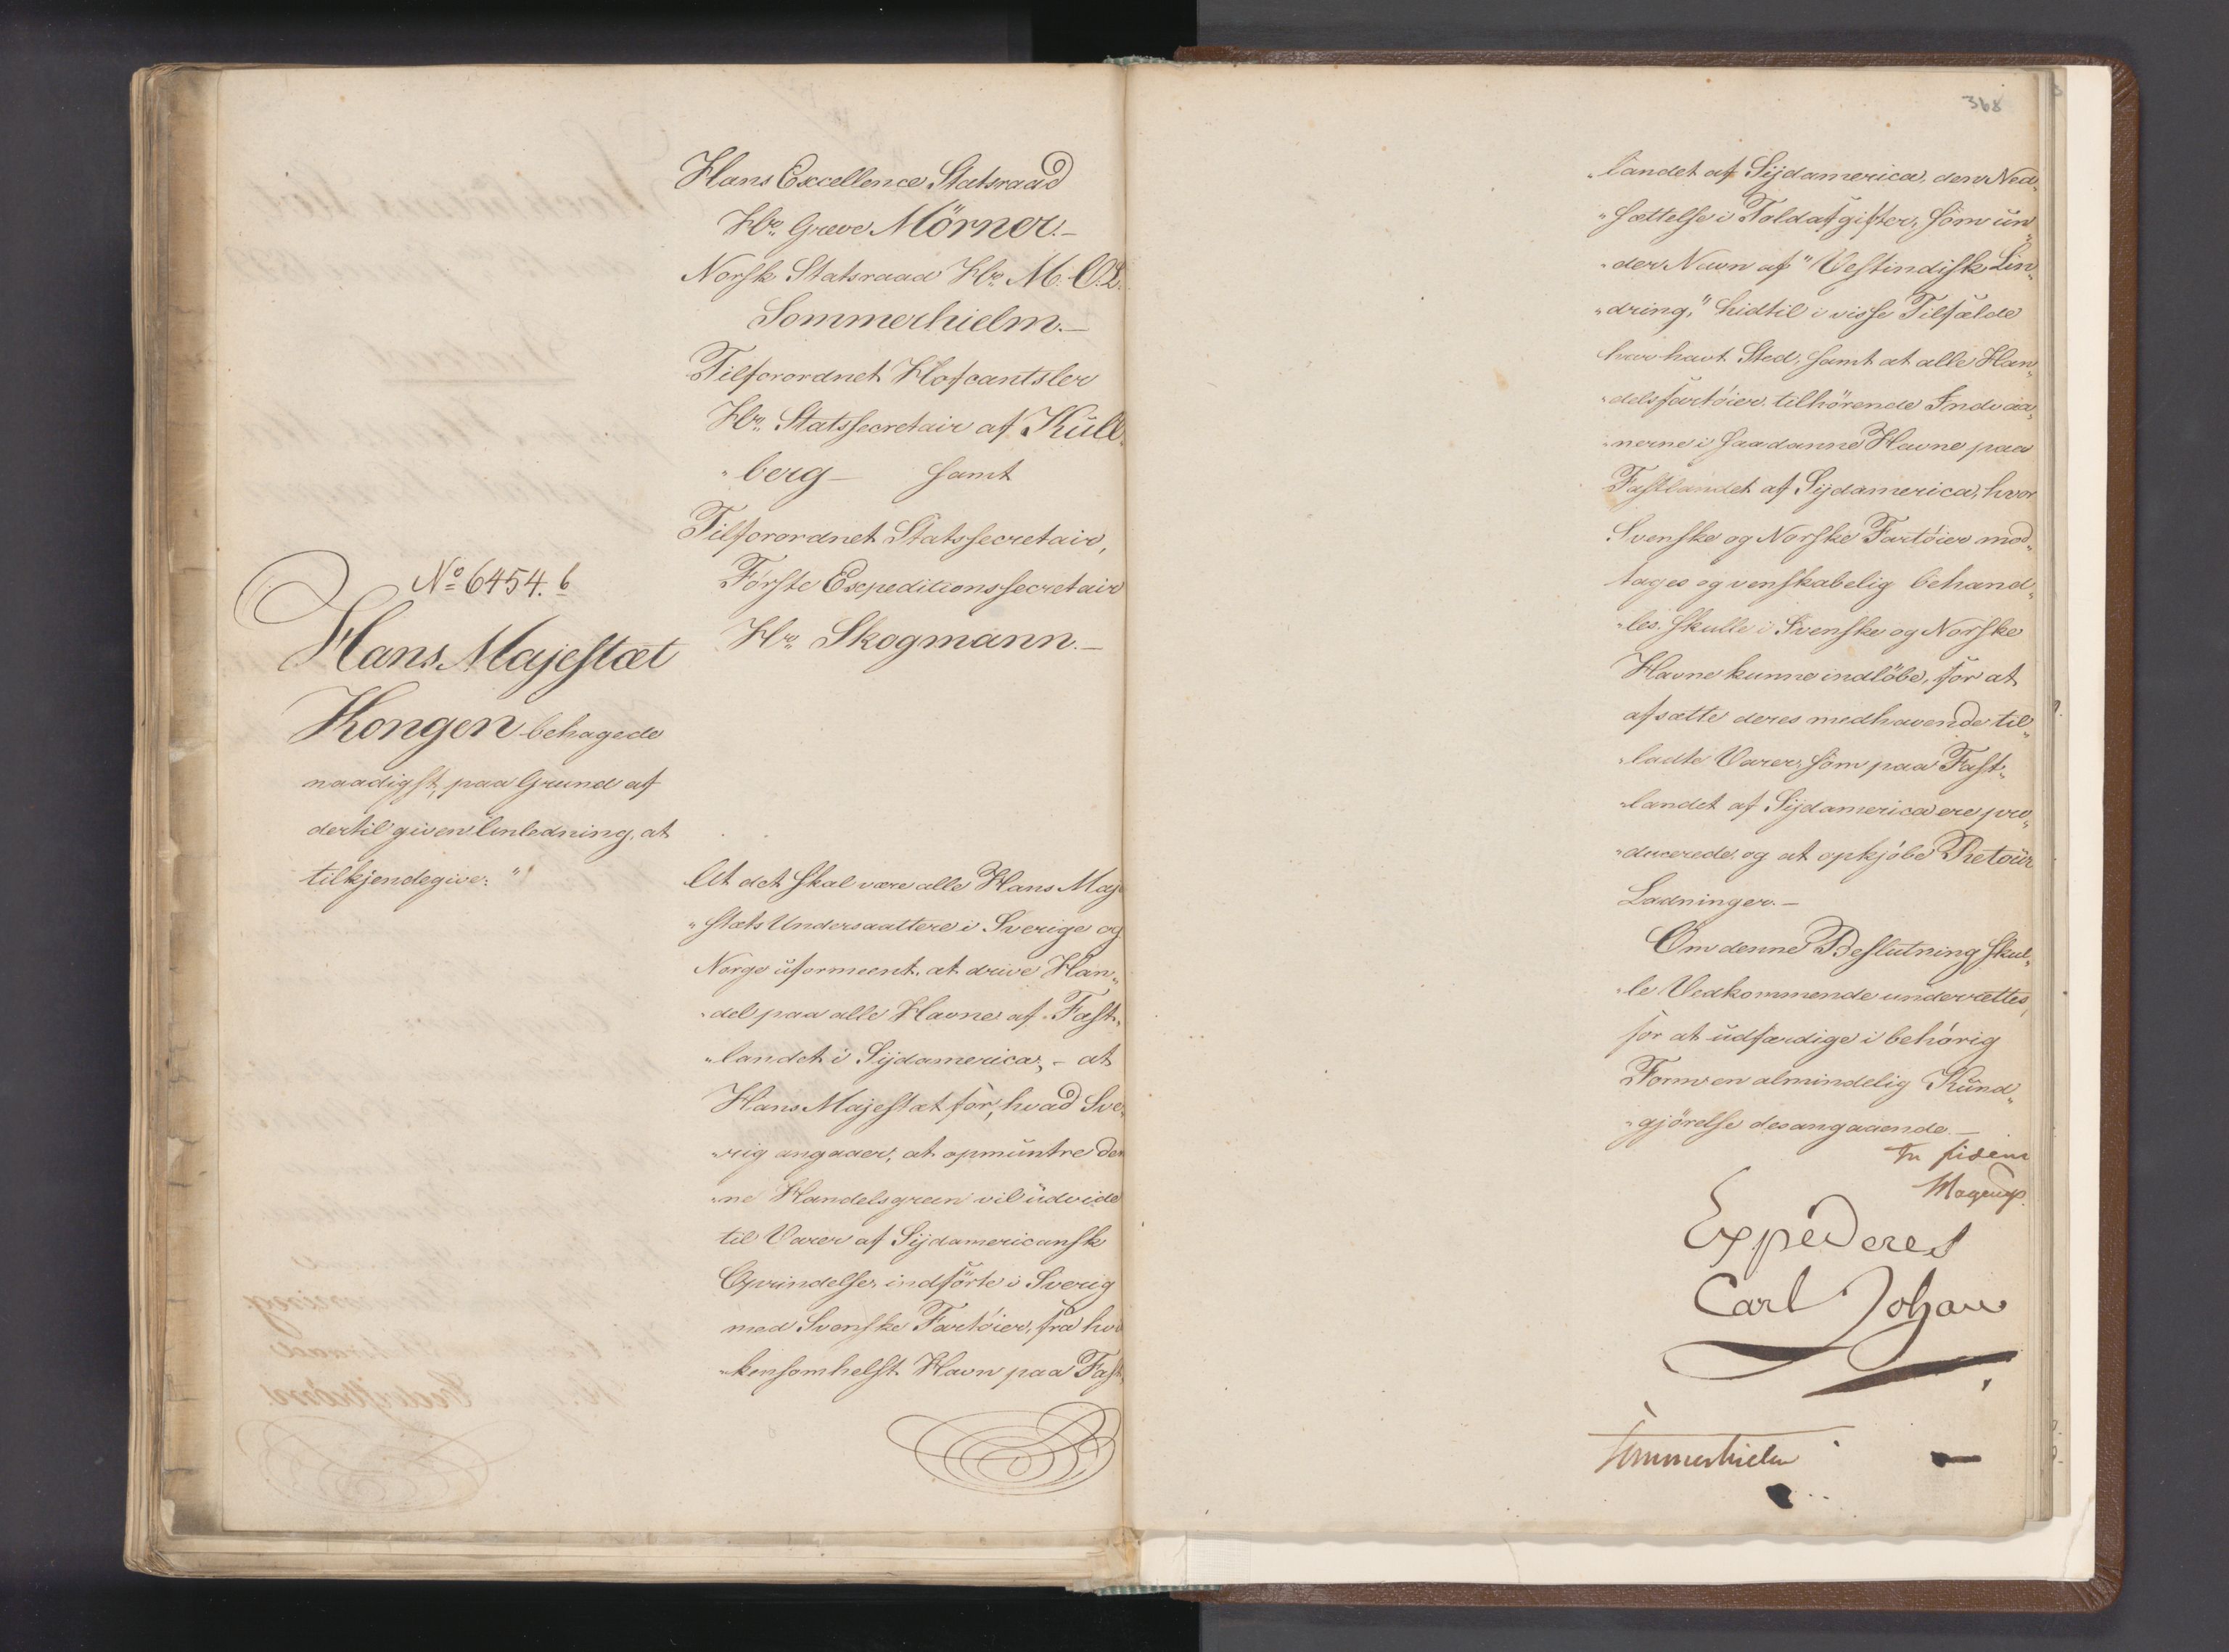 Hans Excellence Statsraad
Hr. Greve Mörner.—
Norsk Statsraad Hr. M. O. L.
Sommerhielm.—
Tilforordnet Hofcantsler
Hr. Statssecretair af Kull„
„berg— samt
Tilforordnet Statssecretair,
Förste Expeditionssecretair
Hr. Skogmann.—
No 6454. b
Hans Majestæt
Kongen behagede
naadigst, paa Grund af
dertil given Anledning, at
tilkjendegive: "
At det skal være alle Hans Maje
„stæts Undersaattere i Sverige og
Norge uformeent, at drive Han„
„del paa alle Havne af Fast„
„landet i Sydamerica, – at
Hans Majestæt for, hvad Sve„
„rig angaaer, at opmuntre den
„ne Handelsgreen vil udvide
til Varer af Sydamericansk
Oprindelse, indförte i Sverig
med Svenske Fartöier, fra hvil
„kensomhelst Havn paa Fast„
368
„landet af Sydamerica, den Ned„
„sættelse i Toldafgifter, som un„
„der Navn af "Vestindisk Lin„
„dring," hidtil i visse Tilfælde
har havt Sted, samt at alle Han„
„delsfartöier, tilhörende Indvaa„
„nerne i saadanne Havne paa
Fastlandet af Sydamerica, hvor
Svenske og Norske Fartöier mod„
tages og venskabelig behand„
„les, skulle i Svenske og Norske
Havne kunne indlöbe, for at
afsætte deres medhavende til„
„ladte Varer, som paa Fast„
„landet af Sydamerica ere pro„
„ducerede, og at opkjöbe Retour
Ladninger.—
Om denne Beslutning skul„
„le Vedkommende underrettes,
for at udfærdige i behörig
Form en almindelig Kund„
„gjörelse desangaaende.—
In fidem
Expederes
Carl Johan
Sommerhielm